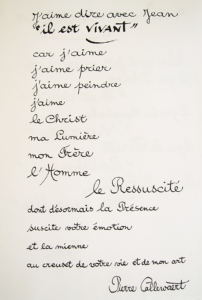 J'aime dire avec Jean
"il est VIVANT"
car j'aime
j'aime prier
j'aime peindre
j'aime
le Christ
ma Lumière
mon Frère
l'Homme
le Ressuscité
dont désormais la Présence
suscite votre émotion
et la mienne
au creuset de votre vie et de mon art
Pierre